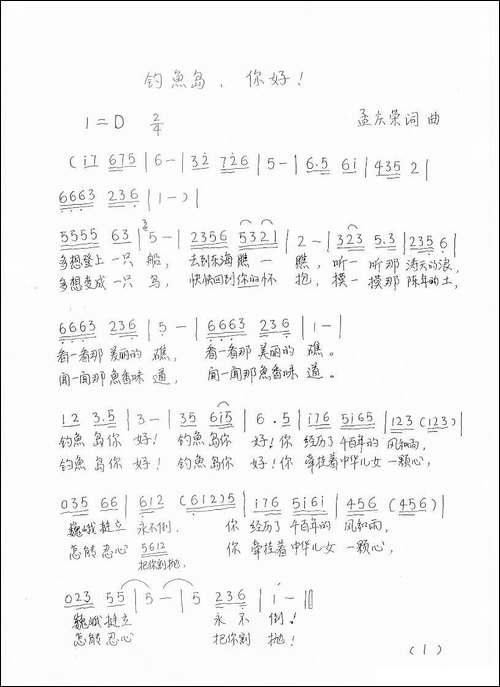 钓魚岛，你好！
1=D 2/4
孟庆荣词曲
(i7 675 | 6 - | 32 726 | 5 - | 6.5 6i | 435 2 |
6663 236 | 1 - ) |
5555 63 | 5 - | 2356 5321 | 2 - | 323 5.3 | 235 6 |
多想登上一只船，去到东海瞧一瞧，听一听那涛天的浪，
多想变成一只鸟，快快回到你的怀抱，摸一摸那陈年的土，
6663 236 | 5 - | 6663 236 | 1 - |
看一看那美丽的礁，看一看那美丽的礁。
闻一闻那魚香味道，闻一闻那魚香味道。
12 3.5 | 3 - | 35 6i5 | 6 . 5 | i76 5i65 | 123 (123) |
钓魚岛你好！钓魚岛你好！你经历了千百年的风和雨，
钓魚岛你好！钓魚岛你好！你牵挂着中华儿女一颗心，
035 66 | 612 (612) 5 | i76 5i6i | 456 (456) |
巍峨挺立永不倒．你经历了千百年的风和雨，
怎能忍心 5612 你牵挂着中华儿女一颗心，
把你割抛，
023 55 | 5 - | 5 236 | i - ||
巍峨挺立永不倒！
怎能忍心把你割抛！
(1)